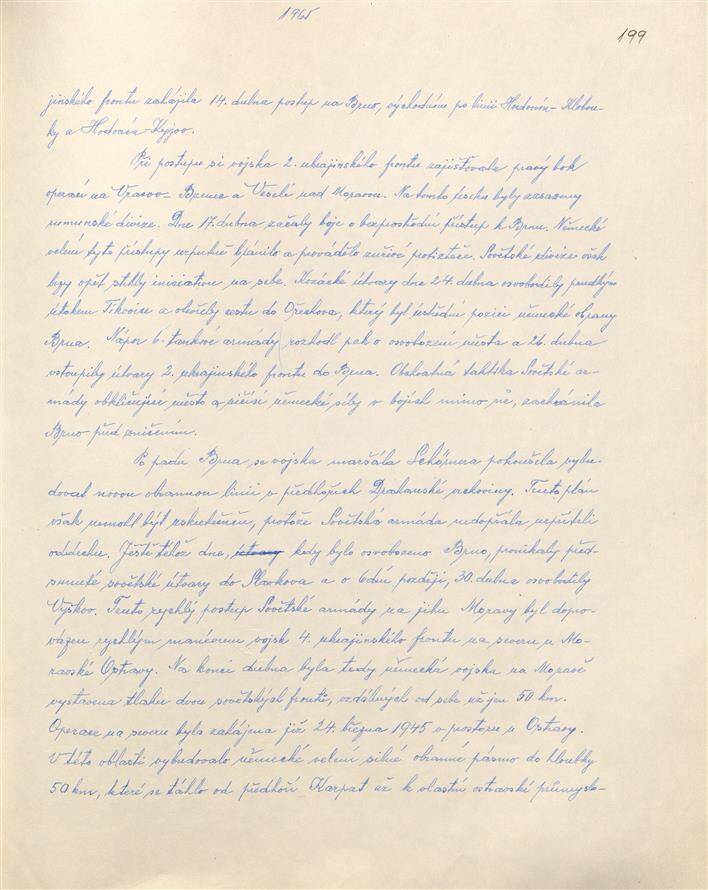 1965
199
jinského frontu zahájila 14. dubna postup na Brno, východním po linii Hodonín - Klobou-
ky a Hodonín - Kyjov.
Při postupu si vojska 2. ukrajinského frontu zajišťovala pravý bok
operací na Vracov - Bzenec a Veselí nad Moravou. Na tomto úseku byly nasazeny
rumunské divize. Dne 17. dubna začaly boje o bezprostřední přístup k Brnu. Německé
velení tyto přístupy urputně bránilo a provádělo zuřivé protizteče. Sovětské divize však
brzy opět strhly iniciativu na sebe. Kozácké útvary dne 24. dubna osvobodily prudkým
útokem Tikovice a otevřely cestu do Ořechova, který byl ústřední pozicí německé obrany
Brna. Nápor 6. tankové armády rozhodl pak o osvobození města a 26. dubna
vstoupily útvary 2. ukrajinského frontu do Brna. Obchvatná taktika Sovětské ar-
mády obkličující město a ničící německé síly v bojích mimo ně, zachránila
Brno před zničením.
Po pádu Brna se vojska maršála Schörnera pokoušela vybu-
dovat novou obrannou linii v předhořích Drahanské vrchoviny. Tento plán
však nemohl být uskutečněn, protože Sovětská armáda nedopřála nepříteli
oddechu. Ještě téhož dne, útvary kdy bylo osvobozeno Brno, pronikaly před-
sunuté sovětské útvary do Slavkova a o 6 dní později, 30. dubna osvobodily
Vyškov. Tento rychlý postup Sovětské armády na jihu Moravy byl dopro-
vázen rychlým manévrem vojsk 4. ukrajinského frontu na severu u Mo-
ravské Ostravy. Na konci dubna byla tedy německá vojska na Moravě
vystavena tlaku dvou sovětských frontů, vzdálených od sebe už jen 50 km.
Operace na severu byla zahájena již 24. března 1945 v prostoru u Ostravy.
V této oblasti vybudovalo německé velení silné obranné pásmo do hloubky
50 km, které se táhlo od předhoří Karpat až k vlastní ostravské průmyslo-